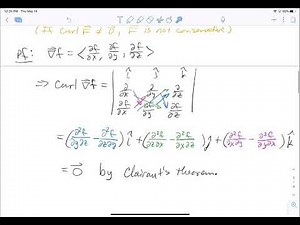 12:31 PM Thu May 14
(If Curl F⃗ ≠ 0⃗, F⃗ is not conservative)
Pf: ∇⃗f = <∂f/∂x, ∂f/∂y, ∂f/∂z>
⇒ Curl ∇⃗f = | î ĵ k̂
∂/∂x ∂/∂y ∂/∂z
∂f/∂x ∂f/∂y ∂f/∂z |
= (∂²f/∂y∂z - ∂²f/∂z∂y) î + (∂²f/∂z∂x - ∂²f/∂x∂z) ĵ + (∂²f/∂x∂y - ∂²f/∂y∂x) k̂
= 0⃗ by Clairaut's theorem.